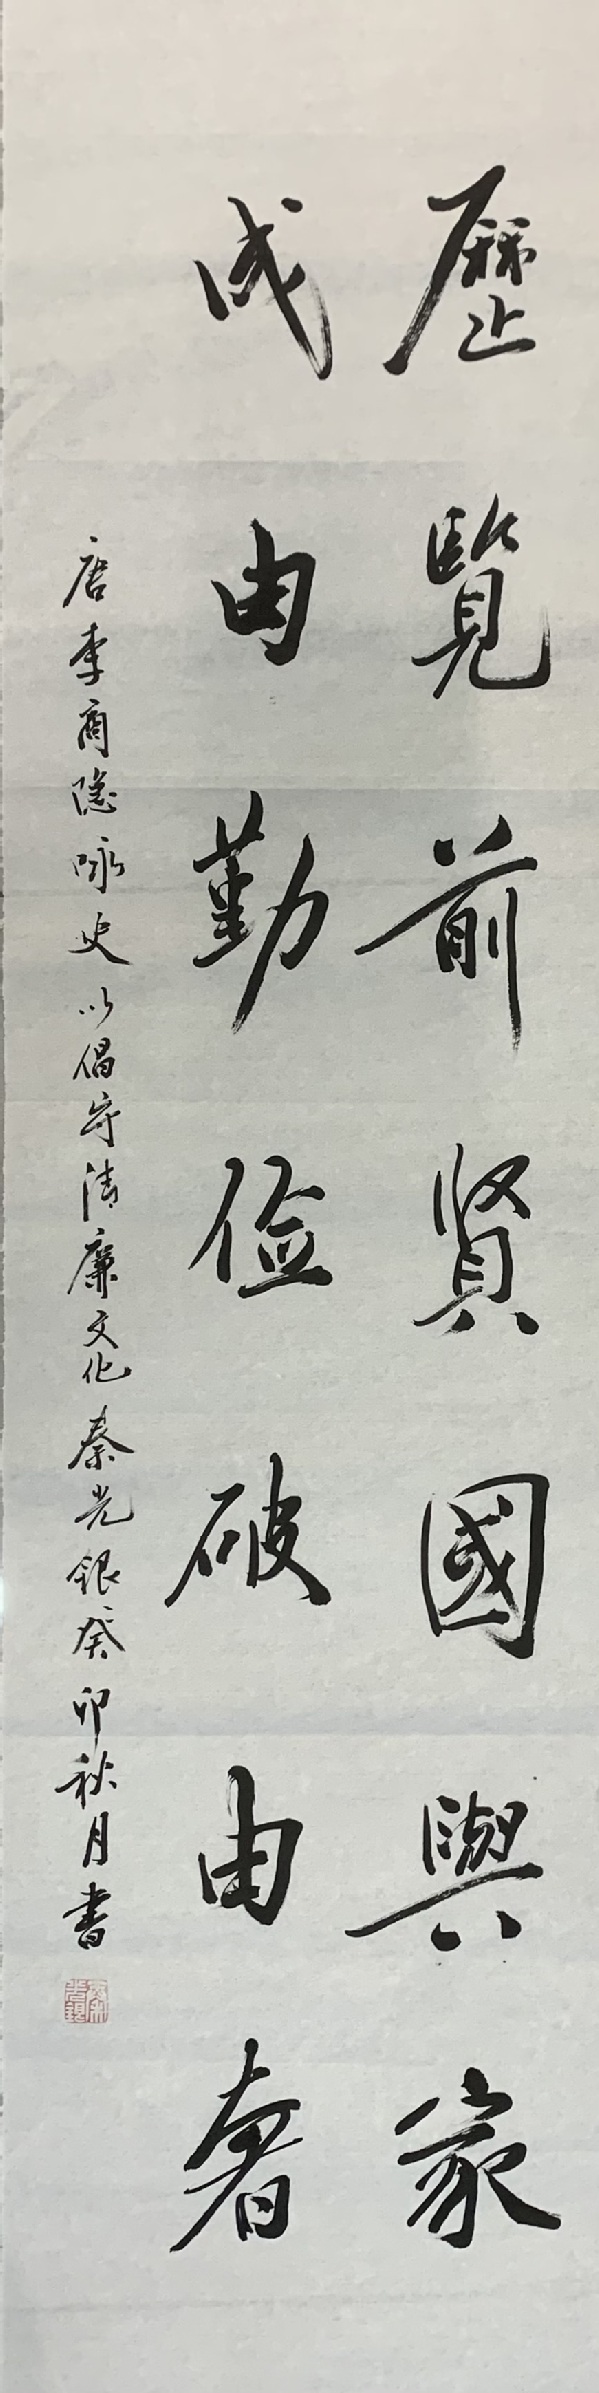 歷覽前賢國與家
成由勤儉破由奢
唐李商隐咏史以倡守清廉文化秦光银癸卯秋月书